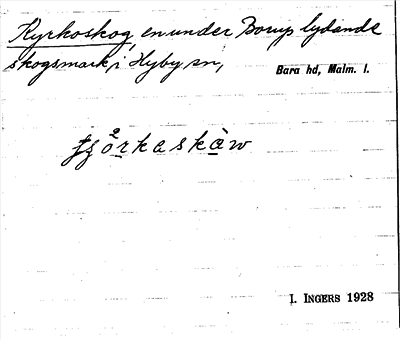 Kyrkoskog, en under Borup lydande
skogsmark, i Hyby sn,
Bara hd, Malm. l.
I. INGERS 1928